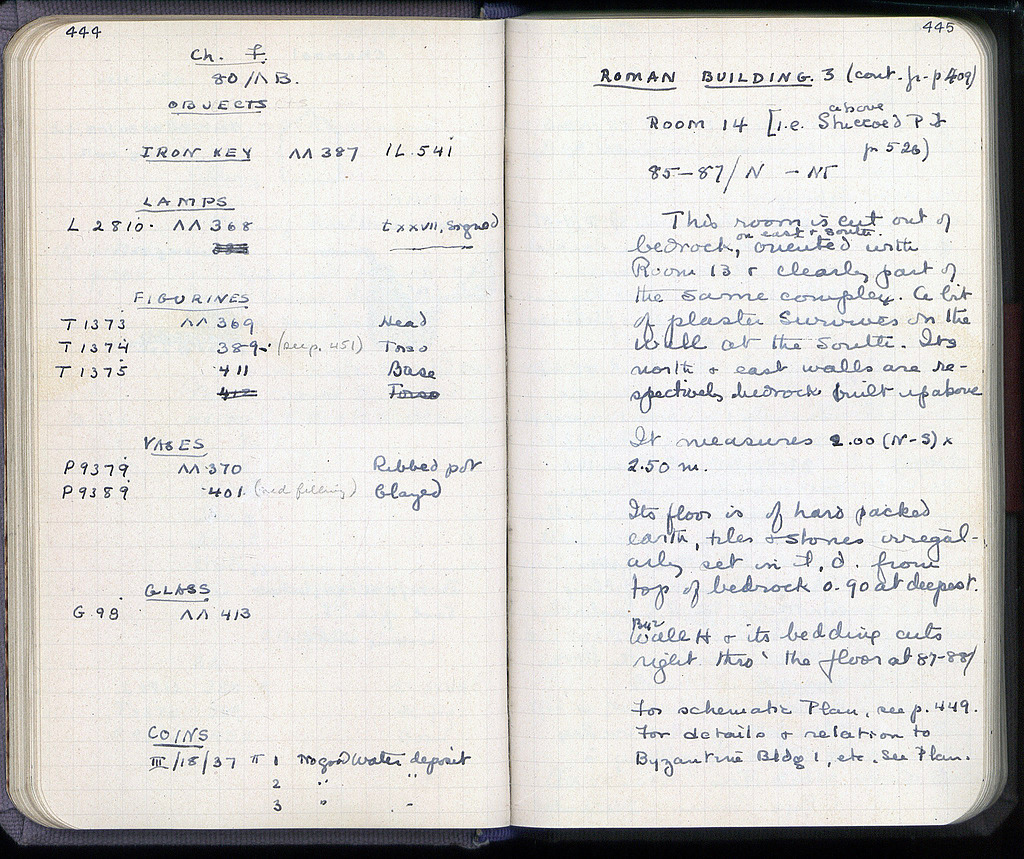 444
Ch. f.
80/ΛB.
OBJECTS
IRON KEY ΛΛ 387 IL 541
LAMPS
L 2810. ΛΛ 368 t xxvii, signed
FIGURINES
T 1373 ΛΛ 369 Head
T 1374 389 (see p. 451) Torso
T 1375 411 Base
412 Torso
VASES
P 9379 ΛΛ 370 Ribbed pot
P 9389 401 (red filling) Glazed
GLASS
G 98 ΛΛ 413
COINS
III/18/37 π 1 No good water deposit
2 " "
3 " "
445
ROMAN BUILDING 3 (cont. fr. p 409)
above
ROOM 14 [i.e. Stuccoed Pit
p 526)
85-87/
This room is cut out of
bedrock, on east + south. oriented with
Room 13 + clearly part of
the same complex. A bit
of plaster survives on the
wall at the south. Its
north + east walls are re-
spectively bedrock built up above
It measures 2.00 (N-S) x
2.50 m.
Its floor is of hard packed
earth, tiles + stones irregul-
arly set in it, d. from
top of bedrock 0.90 at deepest.
Byz
Wall H + its bedding cuts
right thro' the floor at 87-88/
For schematic Plan, see p. 449.
For details + relation to
Byzantine Bldg 1, etc. See Plan.